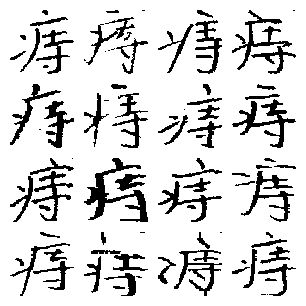 痔痔痔痔
痔痔痔痔
痔痔痔痔
痔痔痔痔